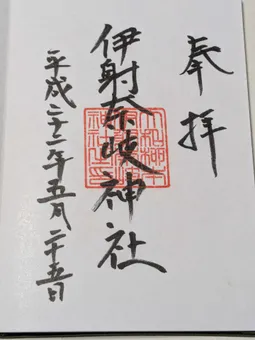 奉拝
伊射奈岐神社
平成二十一年五月二十五日